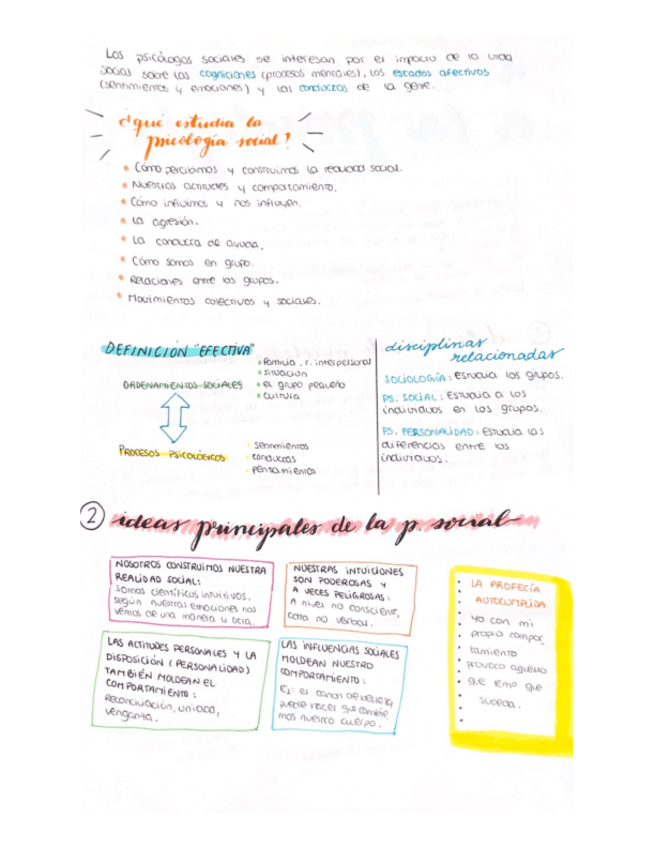 Los psicólogos sociales se interesan por el impacto de la vida
social sobre las cogniciones (procesos mentales), los estados afectivos
(sentimientos y emociones) y las conductas de la gente.
¿qué estudia la
psicología social?
• Cómo percibimos y construimos la realidad social.
• Nuestras actitudes y comportamiento.
• Cómo influimos y nos influyen.
• La agresión.
• La conducta de ayuda.
• Cómo somos en grupo.
• Relaciones entre los grupos.
• Movimientos colectivos y sociales.
DEFINICIÓN "EFECTIVA"
ORDENAMIENTOS SOCIALES
• Familia, r. interpersonal
• Situación
• el grupo pequeño
• Cultura
PROCESOS PSICOLÓGICOS
• sentimientos
• conductas
• pensamientos
disciplinas
relacionadas
SOCIOLOGÍA: Estudia los grupos.
PS. SOCIAL: Estudia a los
individuos en los grupos.
PS. PERSONALIDAD: Estudia las
diferencias entre los
individuos.
2 ideas principales de la p. social
NOSOTROS CONSTRUIMOS NUESTRA
REALIDAD SOCIAL:
Somos científicos intuitivos.
según nuestras emociones nos
vemos de una manera u otra.
NUESTRAS INTUICIONES
SON PODEROSAS Y
A VECES PELIGROSAS:
A nivel no consciente,
cosa no verbal.
LAS ACTITUDES PERSONALES Y LA
DISPOSICIÓN (PERSONALIDAD)
TAMBIÉN MOLDEAN EL
COMPORTAMIENTO:
Reconciliación, unidad,
venganza.
LAS INFLUENCIAS SOCIALES
MOLDEAN NUESTRO
COMPORTAMIENTO:
Ej: el canon de belleza
puede hacer que cambie
mos nuestro cuerpo.
LA PROFECÍA
AUTOCUMPLIDA
yo con mi
propio compor
tamiento
provoco aquello
que temo que
suceda.